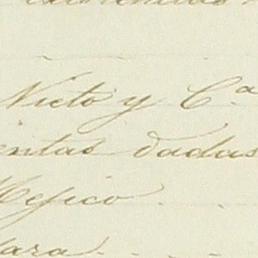 Nieto y C.ª
entas dadas
Mejico
para